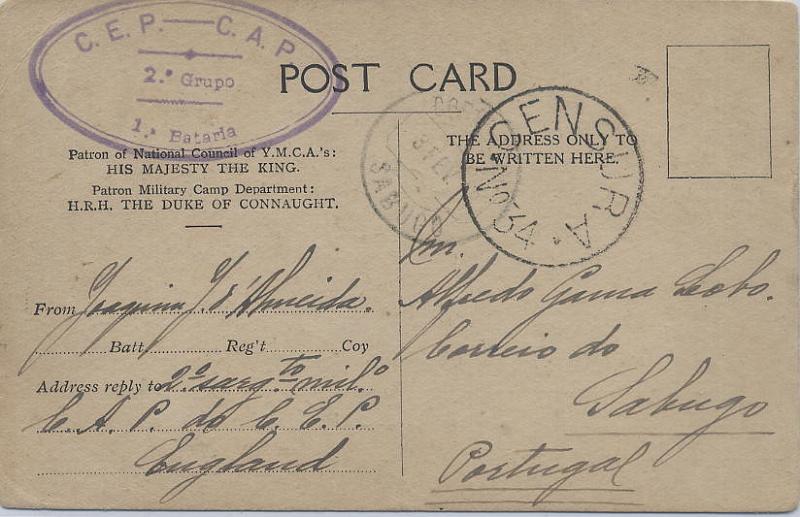 C.E.P.—C.A.P.
2.º Grupo
1.ª Bataria
POST CARD
Patron of National Council of Y.M.C.A.'s:
HIS MAJESTY THE KING.
Patron Military Camp Department:
H.R.H. THE DUKE OF CONNAUGHT.
From Joaquim J. d'Almeida.
Batt. Reg't Coy
Address reply to 2.º sarg.to mil.º
C. A. P. do C. E. P.
England
THE ADDRESS ONLY TO
BE WRITTEN HERE.
CENSURA
Nº 34
SABUGO
Alfredo Gama Lobo.
Correio do
Sabugo
Portugal